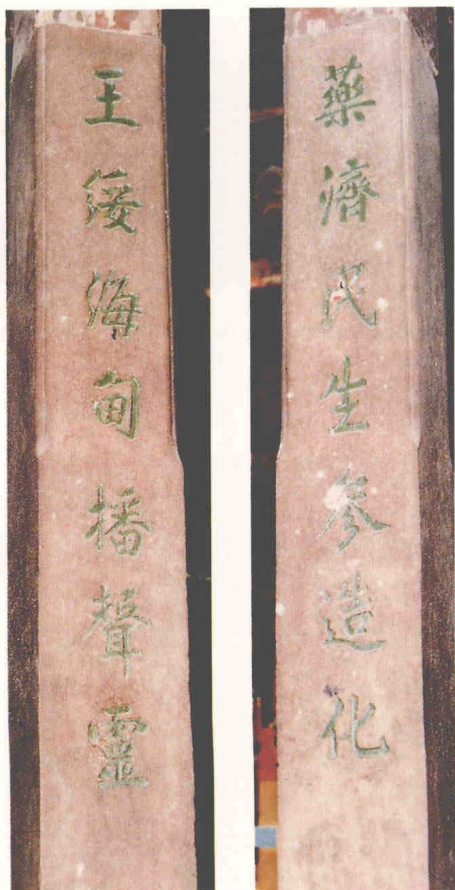 藥濟民生參造化
王綏海甸播聲靈